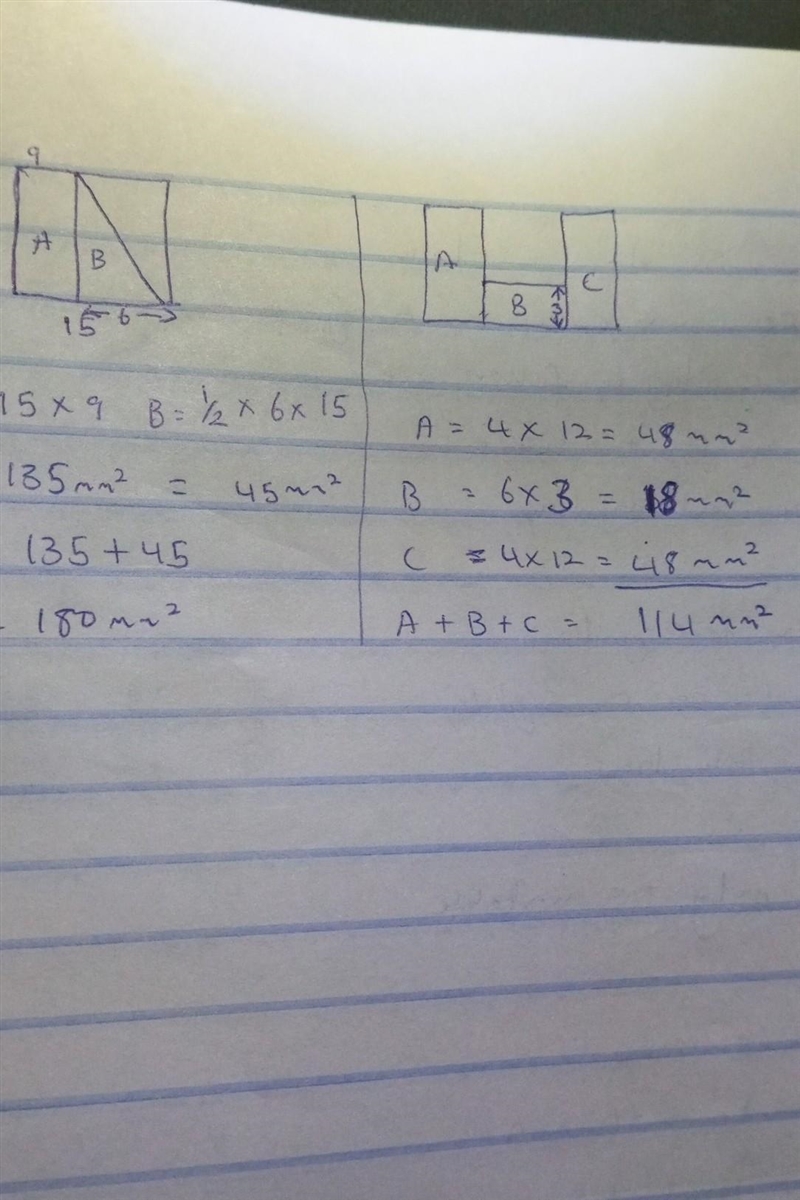 9
A
B
15
6
15 x 9 B = 1/2 x 6 x 15
135mm² = 45mm²
135 + 45
180 mm²
A
B
3
C
A = 4 x 12 = 48 mm²
B = 6 x 3 = 18 mm²
C = 4 x 12 = 48 mm²
A + B + C = 114 mm²